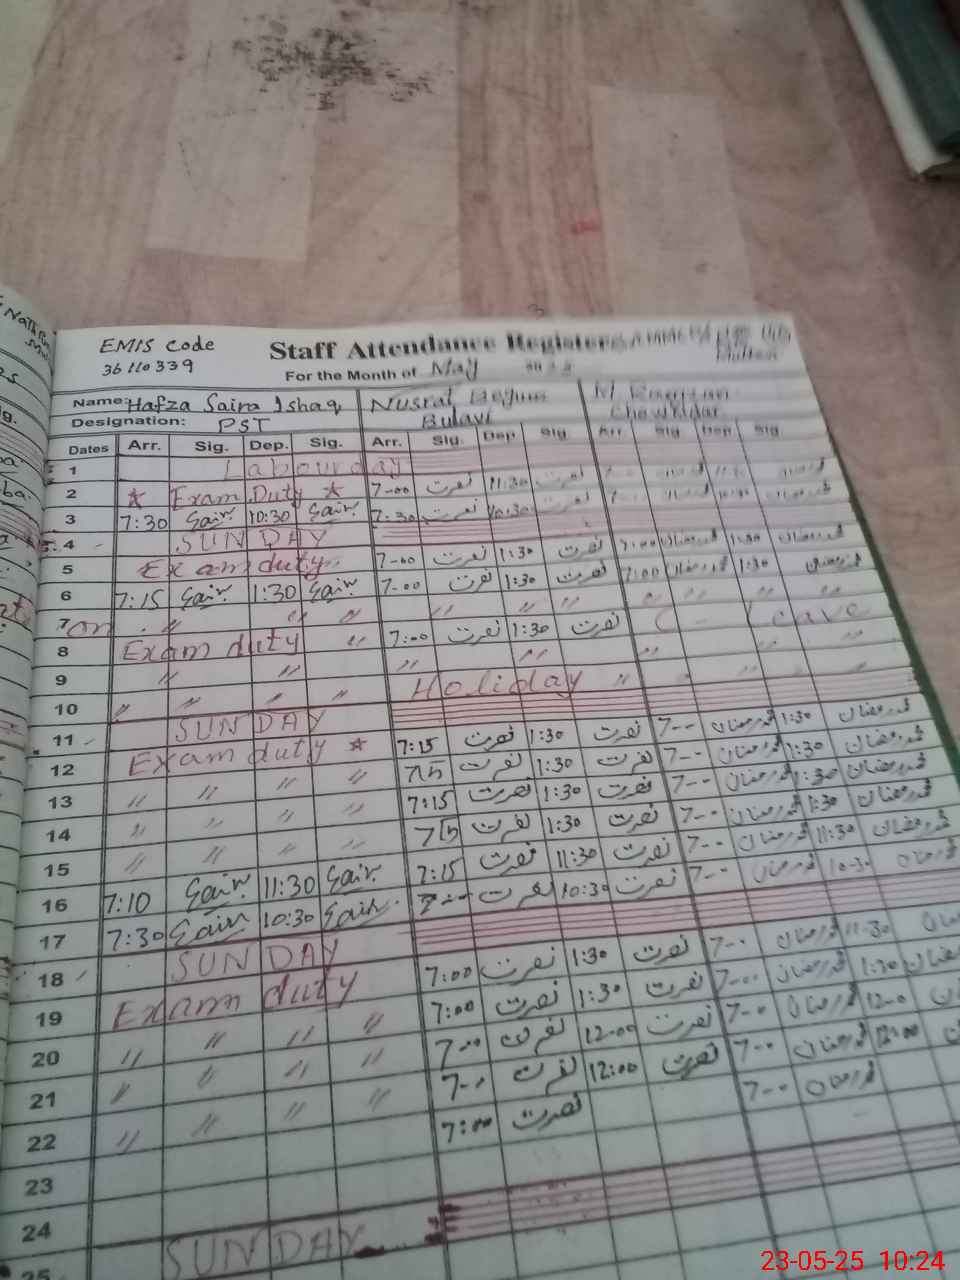 EMIS code
36110339
Staff Attendance Register
For the Month of May
Name: Hafza Saira Ishaq Nusrat Begum M Ramzan
Designation: PST Bulavi Chowkidar
Dates Arr. Sig. Dep. Sig. Arr. Sig. Dep Sig Arr Sig Dep Sig
1 Labour day
2 ★ Exam Duty ★ 7-00 نصرت 11:30 نصرت
3 7:30 Sair 10:30 Sair 7:30 نصرت 10:30 نصرت
4 SUNDAY
5 Exam duty 7-00 نصرت 1:30 نصرت 7:00 محمد رمضان 1:30 محمد رمضان
6 7:15 Sair 1:30 Sair 7-00 نصرت 1:30 نصرت 7:00 محمد رمضان 1:30 محمد رمضان
7 " " " " " " " " "
8 Exam duty " 7:00 نصرت 1:30 نصرت Leave
9 " " " " " "
10 " " " " Holiday "
11 SUNDAY
12 Exam duty ★ 7:15 نصرت 1:30 نصرت 7-00 محمد رمضان 1:30 محمد رمضان
13 " " " " 7:15 نصرت 1:30 نصرت 7-00 محمد رمضان 1:30 محمد رمضان
14 " " " " 7:15 نصرت 1:30 نصرت 7-00 محمد رمضان 1:30 محمد رمضان
15 " " " " 7:15 نصرت 1:30 نصرت 7-00 محمد رمضان 1:30 محمد رمضان
16 7:10 Sair 11:30 Sair 7:15 نصرت 11:30 نصرت 7-00 محمد رمضان 11:30 محمد رمضان
17 7:30 Sair 10:30 Sair 7-00 نصرت 10:30 نصرت 7-00 محمد رمضان 10-30 محمد رمضان
18 SUNDAY
19 Exam duty 7:00 نصرت 1:30 نصرت 7-00 محمد رمضان 11-30
20 " " " " 7:00 نصرت 1:30 نصرت 7-00 محمد رمضان 1:30
21 " " " " 7-00 نصرت 12-00 نصرت 7-00 محمد رمضان 12-0
22 " " " " 7-00 نصرت 12:00 نصرت 7-00 محمد رمضان 12:00
23 7:00 نصرت 7-00 محمد رمضان
24
25 SUNDAY
23-05-25 10:24